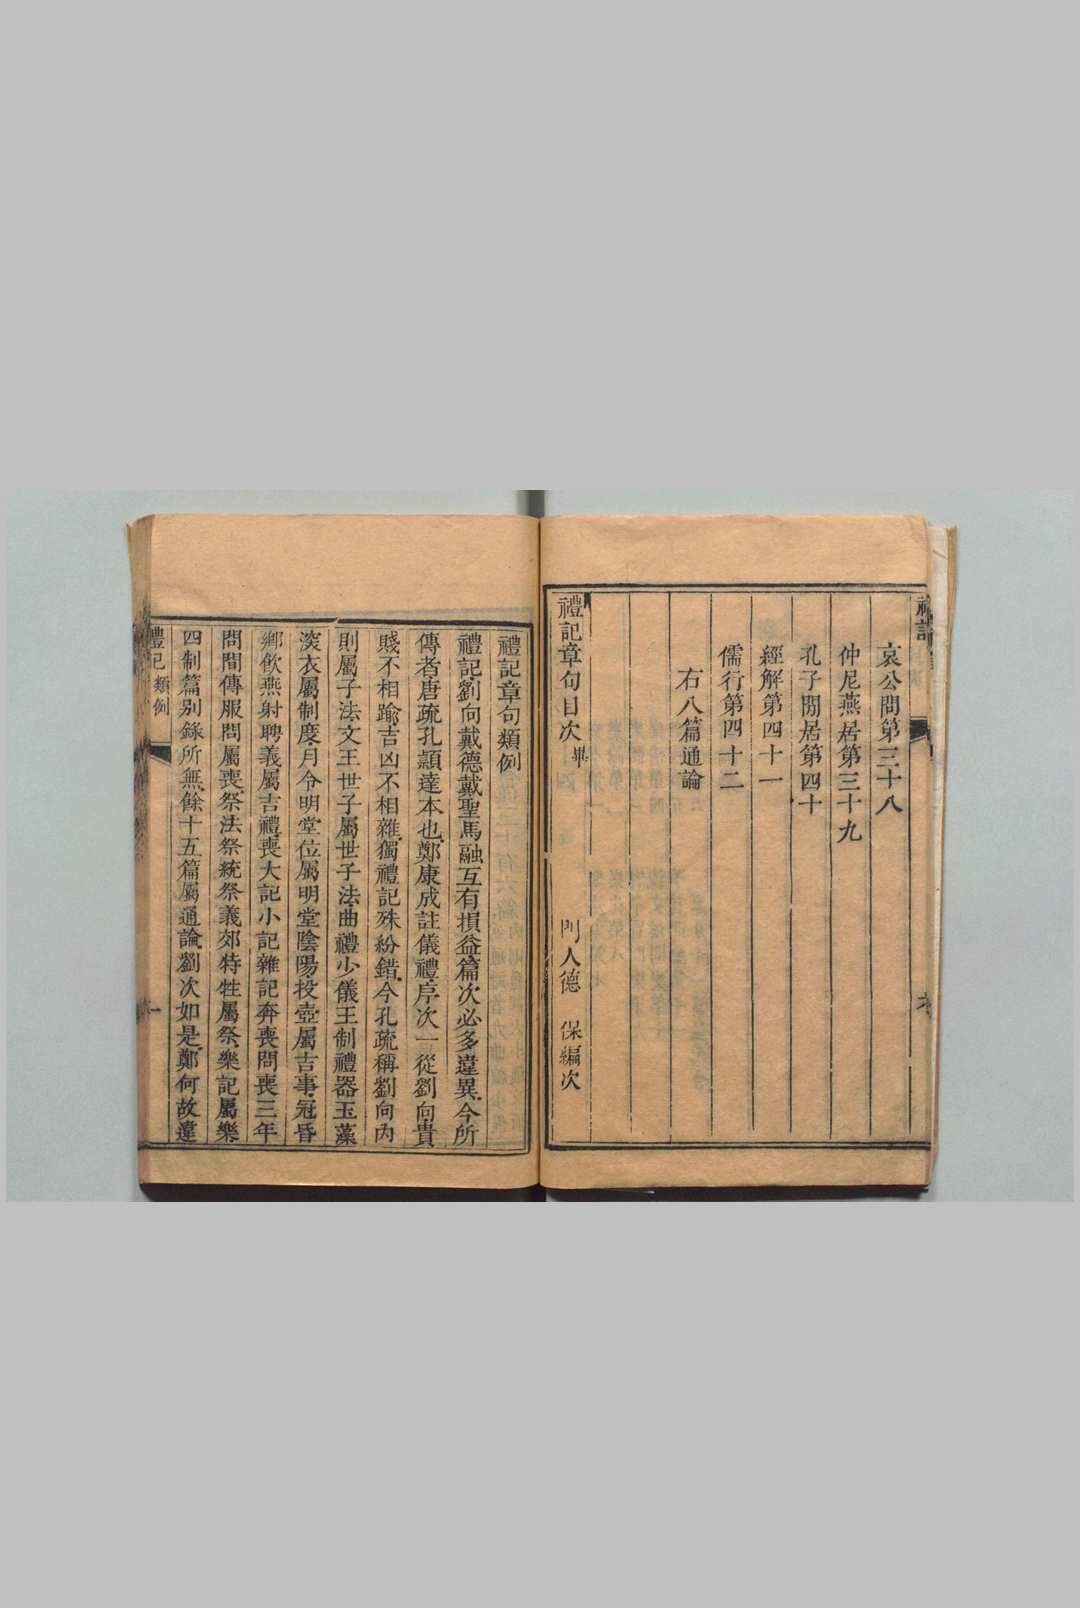 哀公問第三十八
仲尼燕居第三十九
孔子閒居第四十
經解第四十一
儒行第四十二
右八篇通論
禮記章句目次畢
門人德 保編次
禮記章句類例
禮記劉向戴德戴聖馬融互有損益篇次必多違異今所
傳者唐疏孔穎達本也鄭康成註儀禮序次一從劉向貴
賤不相踰吉凶不相雜獨禮記殊紛錯今孔疏稱劉向內
則屬子法文王世子屬世子法曲禮少儀王制禮器玉藻
深衣屬制度月令明堂位屬明堂陰陽投壺屬吉事冠昏
鄉飲燕射聘義屬吉禮喪大記小記雜記奔喪問喪三年
問間傳服問屬喪祭法祭統祭義郊特牲屬祭樂記屬樂
四制篇別錄所無餘十五篇屬通論劉次如是鄭何故違
禮記 類例